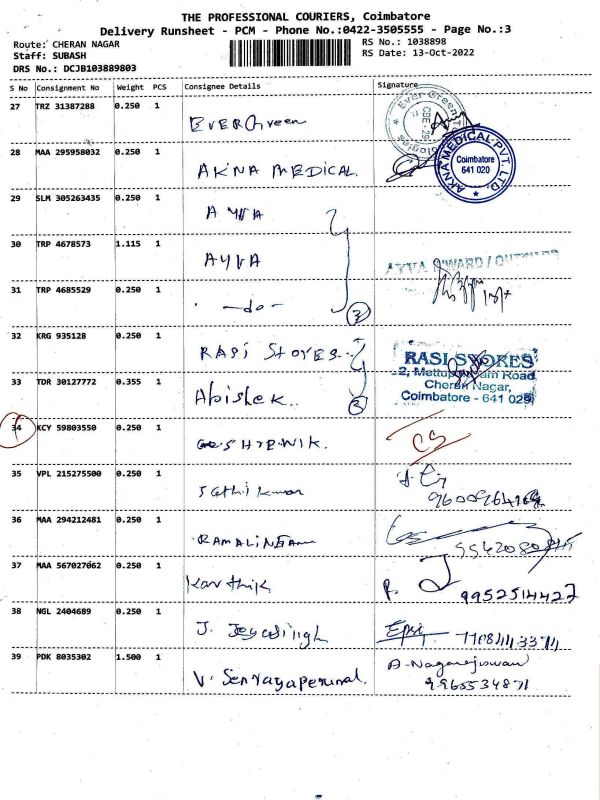 THE PROFESSIONAL COURIERS, Coimbatore
Delivery Runsheet - PCM - Phone No.:0422-3505555 - Page No.:3
Route: CHERAN NAGAR RS No.: 1038898
Staff: SUBASH RS Date: 13-Oct-2022
DRS No.: DCJB103889803
S No Consignment No Weight PCS Consignee Details Signature
27 TRZ 31387288 0.250 1 EverGreen
Ever Green
CBE - 29
28 MAA 295958032 0.250 1 AKNA MEDICAL
AKNA MEDICAL PVT. LTD.
Coimbatore
641 020
29 SLM 305263435 0.250 1 AYVA
30 TRP 4678573 1.115 1 AYVA
AYVA INWARD / OUTWARD
31 TRP 4685529 0.250 1 -do- 3
32 KRG 935128 0.250 1 RASI Stores
RASI STORES
2, Mettupalayam Road
Cheran Nagar,
Coimbatore - 641 029
33 TDR 30127772 0.355 1 Abishek 2
34 KCY 59803550 0.250 1 SHREWIK. CS
35 VPL 215275500 0.250 1 Sathikumar
36 MAA 294212481 0.250 1 RAMALINGAM
37 MAA 567027062 0.250 1 Karthik 9952514427
38 NGL 2404689 0.250 1 J. Jeyasingh
39 PDK 8035302 1.500 1 V. Sennayaperumal. A. Nagarajeswari
9965534871